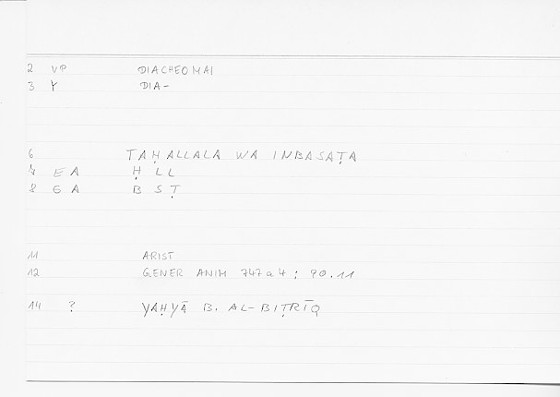 2 VP DIACHEOMAI
3 Y DIA-
6 TAḤALLALA WA INBASAṬA
7 E A Ḥ L L
8 E A B S Ṭ
11 ARIST
12 GENER ANIM 747a4 : 90.11
14 ? YAḤYĀ B. AL-BIṬRĪQ